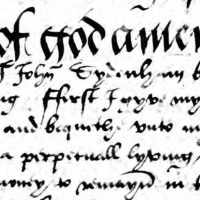 of god amen
I John Sydenham
ffirst I gyve my
and bequethe unto m
a perpetuall
money to remayn in